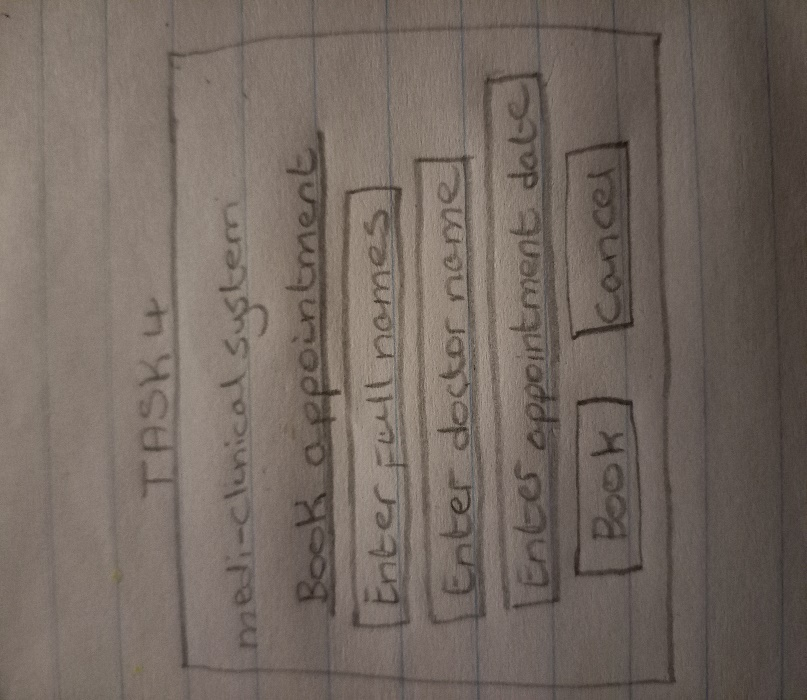 TASK 4
medi-clinical system
Book appointment
Enter full names
Enter doctor name
Enter appointment date
Book Cancel